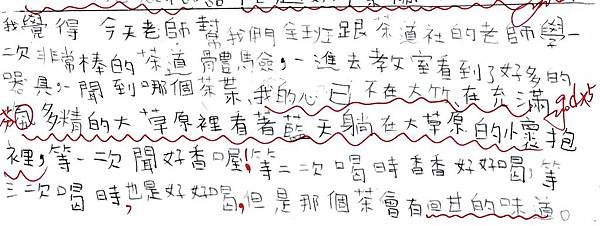 我覺得 今天老師幫我們全班跟茶道社的老師學一
次非常棒的茶道體驗,一進去教室看到了好多的
器具,一聞到哪個茶葉,我的心已不在大竹,在充滿
芬多精的大草原裡看著藍天躺在大草原的懷抱
裡,等一次聞好香喔!等二次喝時香香好好喝,等
三次喝時,也是好好喝,但是那個茶會有回甘的味道。